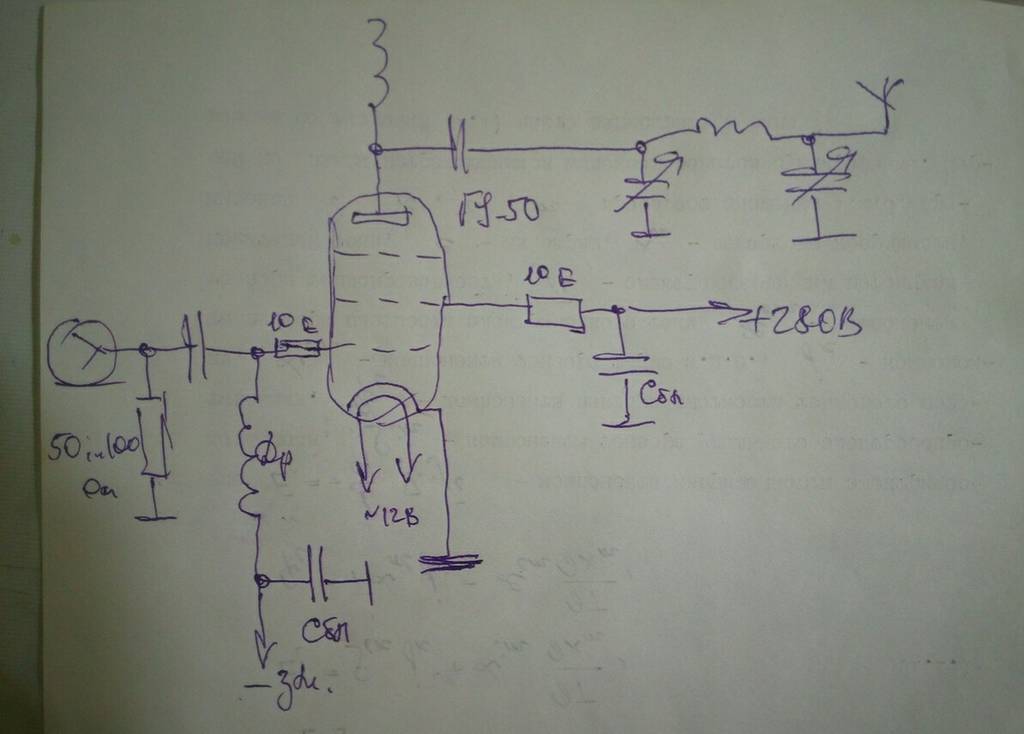 ГУ-50
10 Е
+280В
10 Е
Сбл
50÷100
Ом
Др
~12В
Сбл